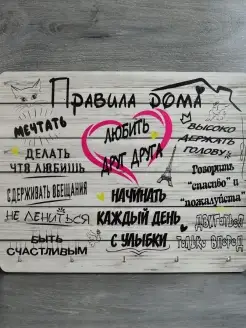 Правила дома
МЕЧТАТЬ
ДЕЛАТЬ
ЧТО ЛЮБИШЬ
СДЕРЖИВАТЬ ОБЕЩАНИЯ
НЕ ЛЕНИТЬСЯ
БЫТЬ
СЧАСТЛИВЫМ
ЛЮБИТЬ
ДРУГ ДРУГА
НАЧИНАТЬ
КАЖДЫЙ ДЕНЬ
С УЛЫБКИ
ВЫСОКО
ДЕРЖАТЬ
ГОЛОВУ
Говорить
"спасибо" и
"пожалуйста"
ДВИГАТЬСЯ
ТОЛЬКО ВПЕРЕД